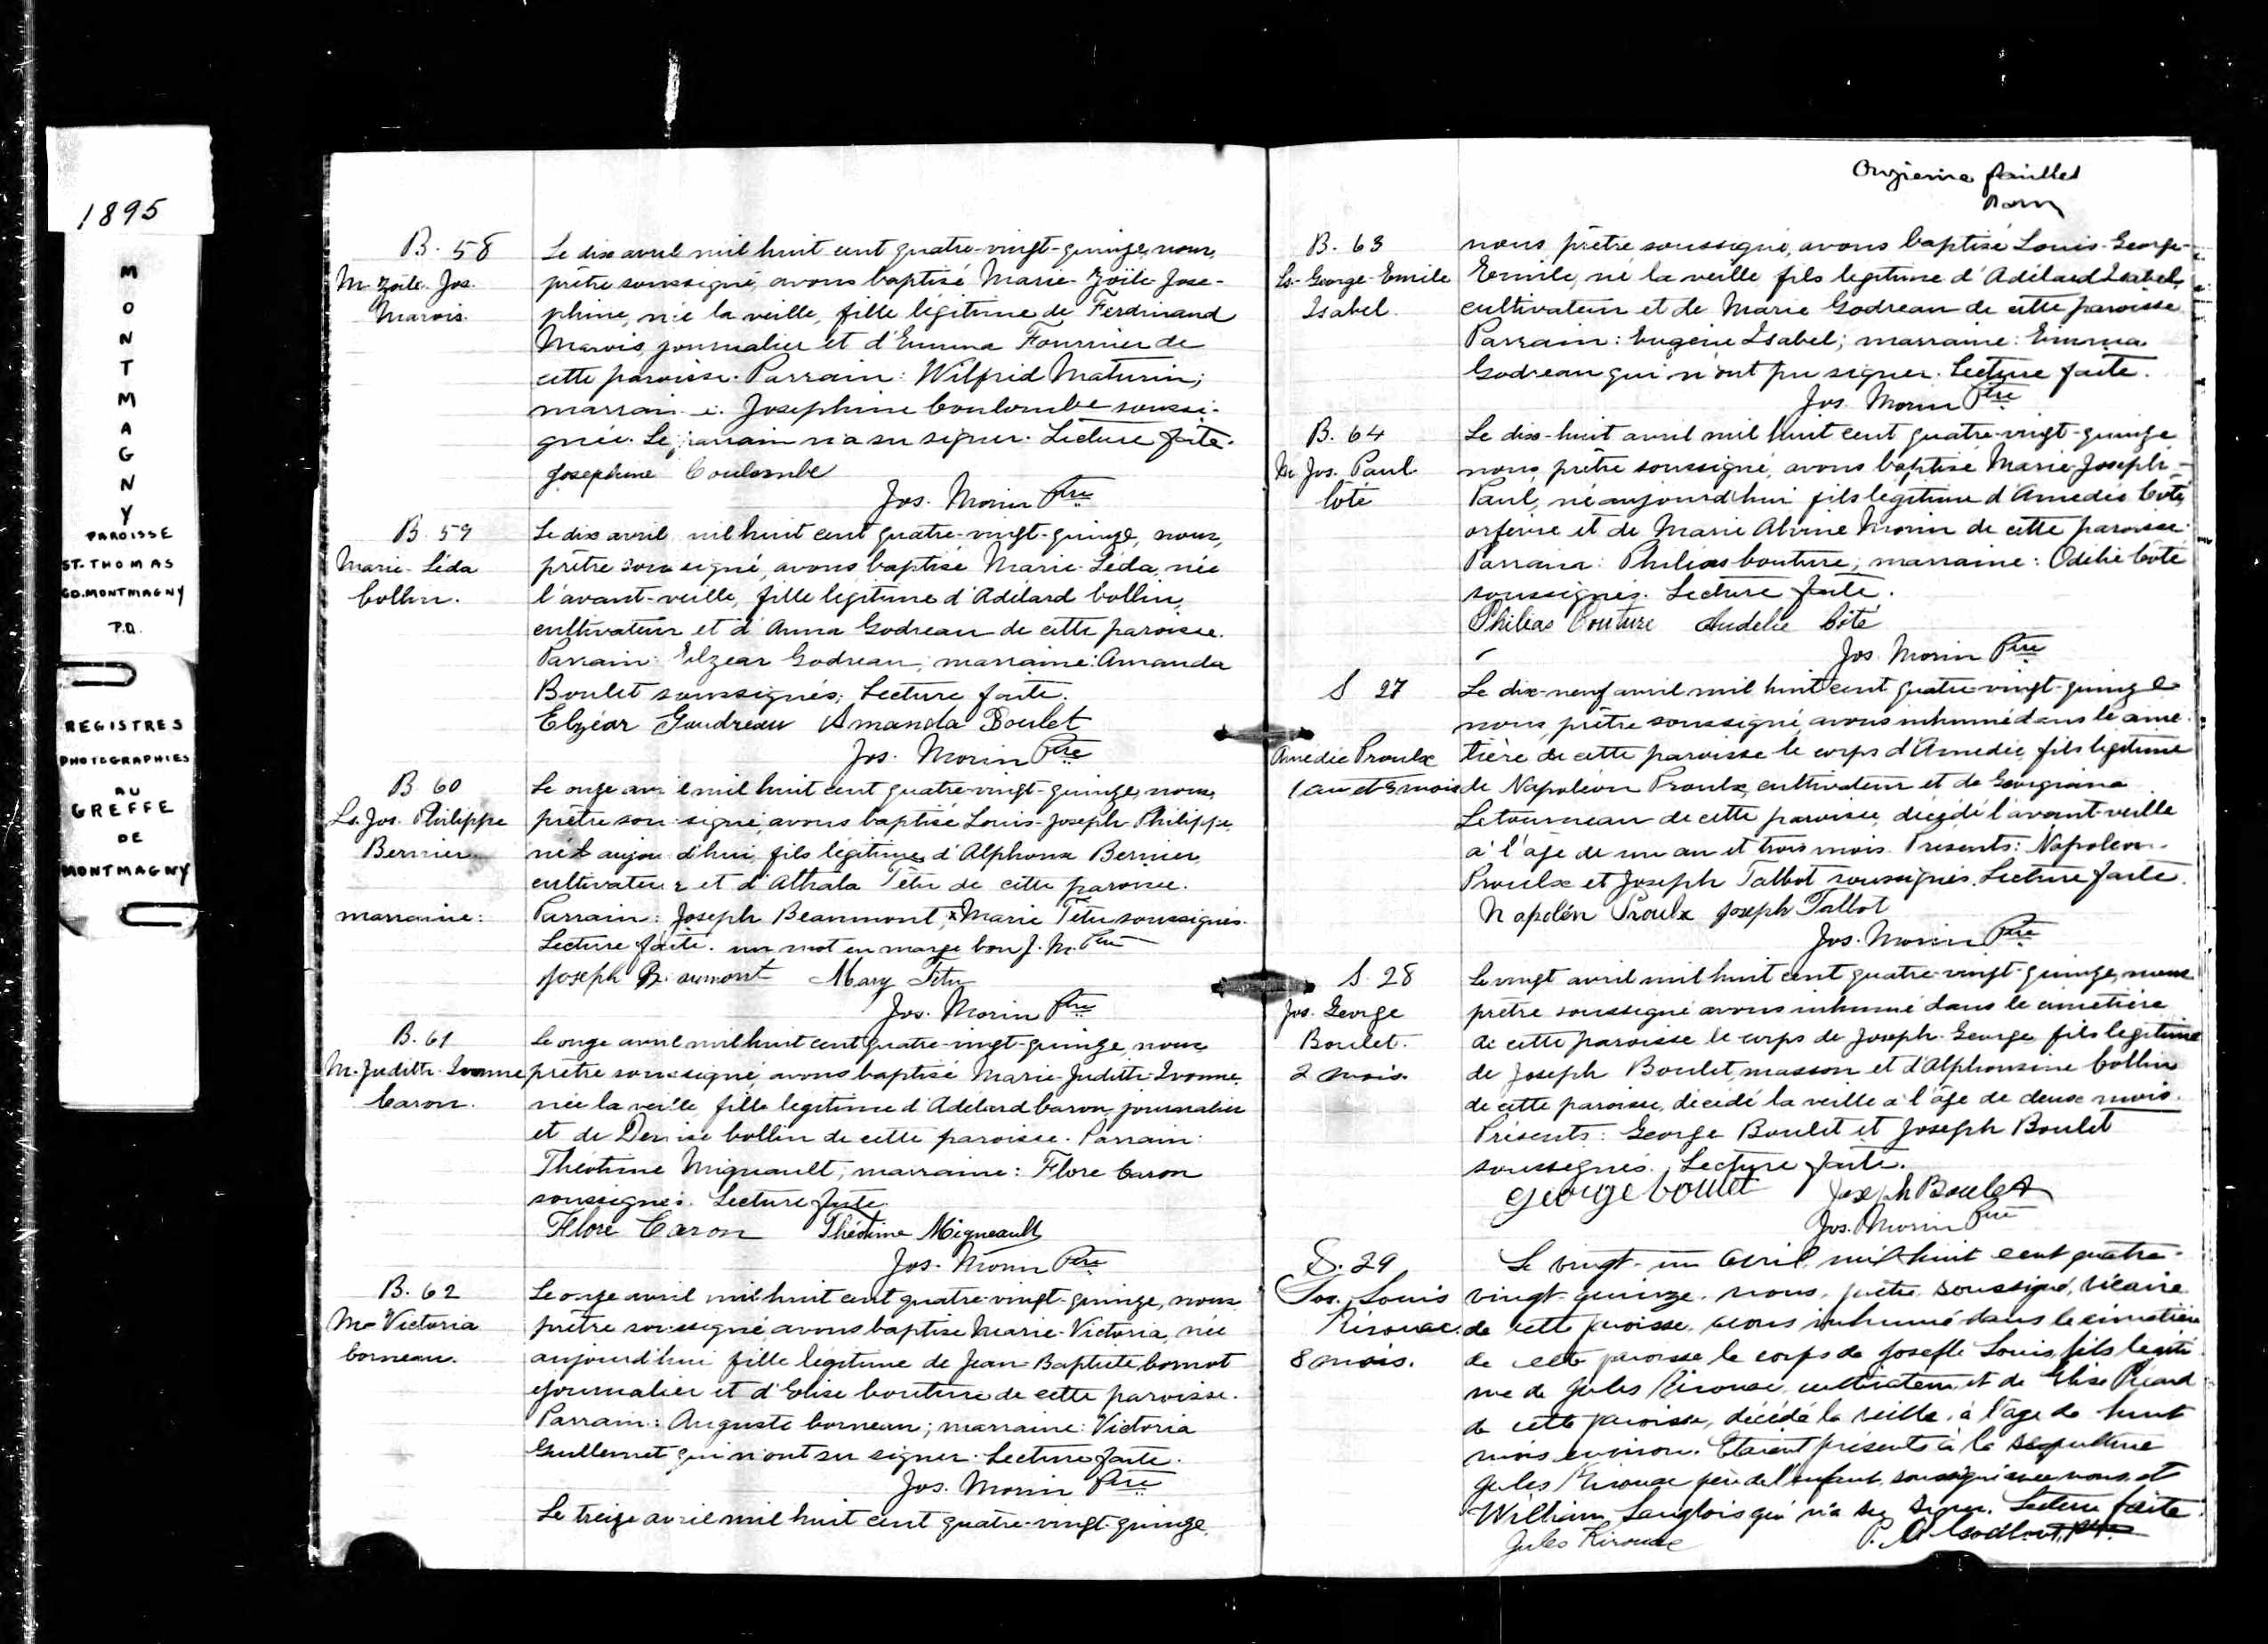 1895
MONTMAGNY
PAROISSE
ST. THOMAS
CO. MONTMAGNY
P.Q.
REGISTRES
PHOTOGRAPHIES
AU
GREFFE
DE
MONTMAGNY
B. 58
M. Zoïle. Jos.
Marois.
Le dix avril mil huit cent quatre-vingt-quinze, nous,
prêtre soussigné, avons baptisé Marie-Zoïle-José-
phine, née la veille, fille légitime de Ferdinand
Marois, journalier et d'Emma Fournier de
cette paroisse. Parrain: Wilfrid Maturin;
marraine: Josephine Coulombe soussi-
gnée. Le parrain n'a su signer. Lecture faite.
Josephine Coulombe
Jos. Morin Ptre
B. 59
Marie-Léda
Collin.
Le dix avril mil huit cent quatre-vingt-quinze, nous,
prêtre soussigné, avons baptisé Marie-Léda, née
l'avant-veille, fille légitime d'Adélard Collin,
cultivateur et d'Anna Godreau de cette paroisse.
Parrain: Elzéar Godreau; marraine: Amanda
Boulet soussignés. Lecture faite.
Elzéar Gaudreau Amanda Boulet
Jos. Morin Ptre
B. 60
Ls. Jos. Philippe
Bernier
Le onze avril mil huit cent quatre-vingt-quinze, nous,
prêtre soussigné, avons baptisé Louis-Joseph Philippe,
né aujourd'hui, fils légitime d'Alphonse Bernier,
cultivateur et d'Athala Têtu de cette paroisse.
marraine:
Parrain: Joseph Beaumont, x Marie Têtu soussignés.
Lecture faite. un mot en marge bon J. M. Ptre
Joseph Beaumont Mary Tetu
Jos. Morin Ptre
B. 61
M. Judith-Ivonne
Caron.
Le onze avril mil huit cent quatre-vingt-quinze, nous,
prêtre soussigné, avons baptisé Marie-Judith-Ivonne,
née la veille, fille légitime d'Adélard Caron, journalier
et de Denise Collin de cette paroisse. Parrain:
Théotime Mignault; marraine: Flore Caron
soussignés. Lecture faite.
Flore Caron Théotime Migneault
Jos. Morin Ptre
B. 62
Me Victoria
Corneau.
Le onze avril mil huit cent quatre-vingt-quinze, nous,
prêtre soussigné, avons baptisé Marie-Victoria, née
aujourd'hui, fille légitime de Jean-Baptiste Cornot
journalier et d'Elise Couture de cette paroisse.
Parrain: Auguste Corneau; marraine: Victoria
Guillemet qui n'ont su signer. Lecture faite.
Jos. Morin Ptre
Le treize avril mil huit cent quatre-vingt-quinze,
Onzième feuillet
B. 63
Ls-George-Emile
Isabel.
nous, prêtre soussigné, avons baptisé Louis-George-
Emile, né la veille, fils légitime d'Adélard Isabel,
cultivateur et de Marie Godreau de cette paroisse
Parrain: Eugène Isabel; marraine: Emma
Godreau qui n'ont pu signer. Lecture faite.
Jos. Morin Ptre
B. 64
M. Jos. Paul
Côté
Le dix-huit avril mil huit cent quatre-vingt-quinze
nous, prêtre soussigné, avons baptisé Marie-Joseph-
Paul, né aujourd'hui, fils légitime d'Amédée Côté,
orfèvre et de Marie Alvine Morin de cette paroisse.
Parrain: Philias Couture; marraine: Odélie Côté
soussignés. Lecture faite.
Philias Couture Audelie Côté
Jos. Morin Ptre
S 27
Amédée Proulx
1 an et 3 mois
Le dix-neuf avril mil huit cent quatre-vingt-quinze
nous, prêtre soussigné, avons inhumé dans le cime-
tière de cette paroisse le corps d'Amédée, fils légitime
de Napoléon Proulx, cultivateur et de Georgiana
Letourneau de cette paroisse, décédé l'avant-veille
à l'âge de un an et trois mois. Présents: Napoléon
Proulx et Joseph Talbot soussignés. Lecture faite.
Napolén Proulx Joseph Talbot
Jos. Morin Ptre
S. 28
Jos. George
Boulet.
2 mois.
Le vingt avril mil huit cent quatre-vingt-quinze, nous
prêtre soussigné avons inhumé dans le cimetière
de cette paroisse le corps de Joseph-George fils légitime
de Joseph Boulet, masson et d'Alphonsine Collin
de cette paroisse, décédé la veille à l'âge de deux mois.
Présents: George Boulet et Joseph Boulet
soussignés. Lecture faite.
George boulet Joseph Boulet
Jos. Morin Ptre
S. 29
Jos. Louis
Kirouac.
8 mois.
Le vingt-un avril mil huit cent quatre-
vingt-quinze, nous, prêtre soussigné, vicaire
de cette paroisse, avons inhumé dans le cimetière
de cette paroisse le corps de Joseph Louis, fils légiti-
me de Jules Kirouac, cultivateur et de Elise Picard
de cette paroisse, décédé la veille, à l'âge de huit
mois environ. Etaient présents à la sépulture
Jules Kirouac père de l'enfant, soussigné avec nous, et
William Langlois qui n'a su signer. Lecture faite.
Jules Kirouac
P. A. Godbout, Ptre.